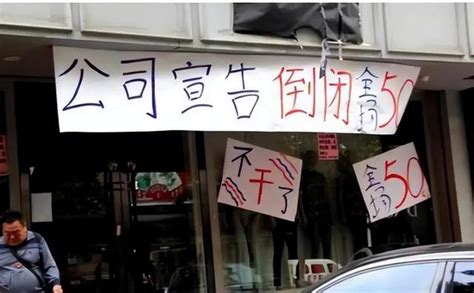 公司宣告倒闭全捐50
不干了
全捐50